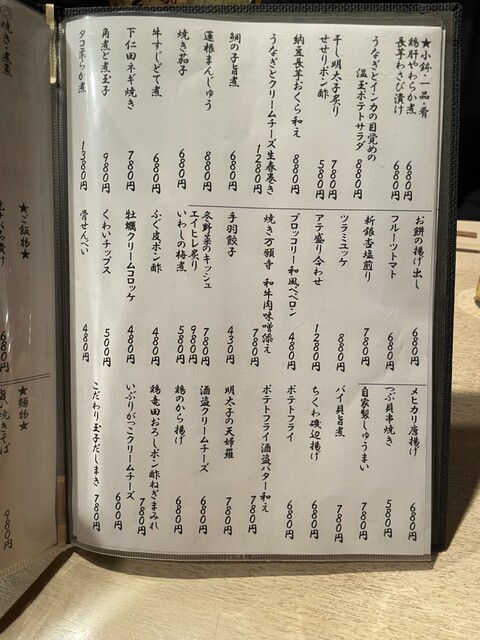 ★小鉢・一品・肴
鶏肝やわらか煮 680円
長芋わさび漬け 680円
うなぎとインカの目覚めの
温玉ポテトサラダ 880円
干し明太子炙り 780円
せせりポン酢 580円
納豆長芋おくら和え 880円
うなぎとクリームチーズ生春巻き 1280円
鯛の子旨煮 680円
蓮根まんじゅう 880円
焼き茄子 680円
牛すじどて煮 680円
下仁田ネギ焼き 780円
角煮と煮玉子 980円
タコ柔らか煮 1380円
お餅の揚げ出し 680円
フルーツトマト 680円
新銀杏塩煎り 780円
ツラミユッケ 880円
アテ盛り合わせ 1280円
ブロッコリー和風ペペロン 480円
焼き万願寺 和牛肉味噌添え 780円
手羽餃子 430円
冬野菜のキッシュ 780円
エイヒレ炙り 980円
いわしの梅煮 580円
ふぐ皮ポン酢 480円
牡蠣クリームコロッケ 480円
くわいチップス 500円
骨せんべい 480円
メヒカリ唐揚げ 680円
つぶ貝串焼き 580円
自家製しゅうまい 780円
バイ貝旨煮 780円
ちくわ磯辺揚げ 680円
ポテトフライ 680円
ポテトフライ酒盗バター和え 780円
明太子の天婦羅 780円
酒盗クリームチーズ 680円
鶏のから揚げ 680円
鶏竜田おろしポン酢ねぎまみれ 780円
いぶりがっこクリームチーズ 600円
こだわり玉子だしまき 780円
◎焼き・煮蒸
★ご飯物★
680円
★麺物★
焼きそば 980円